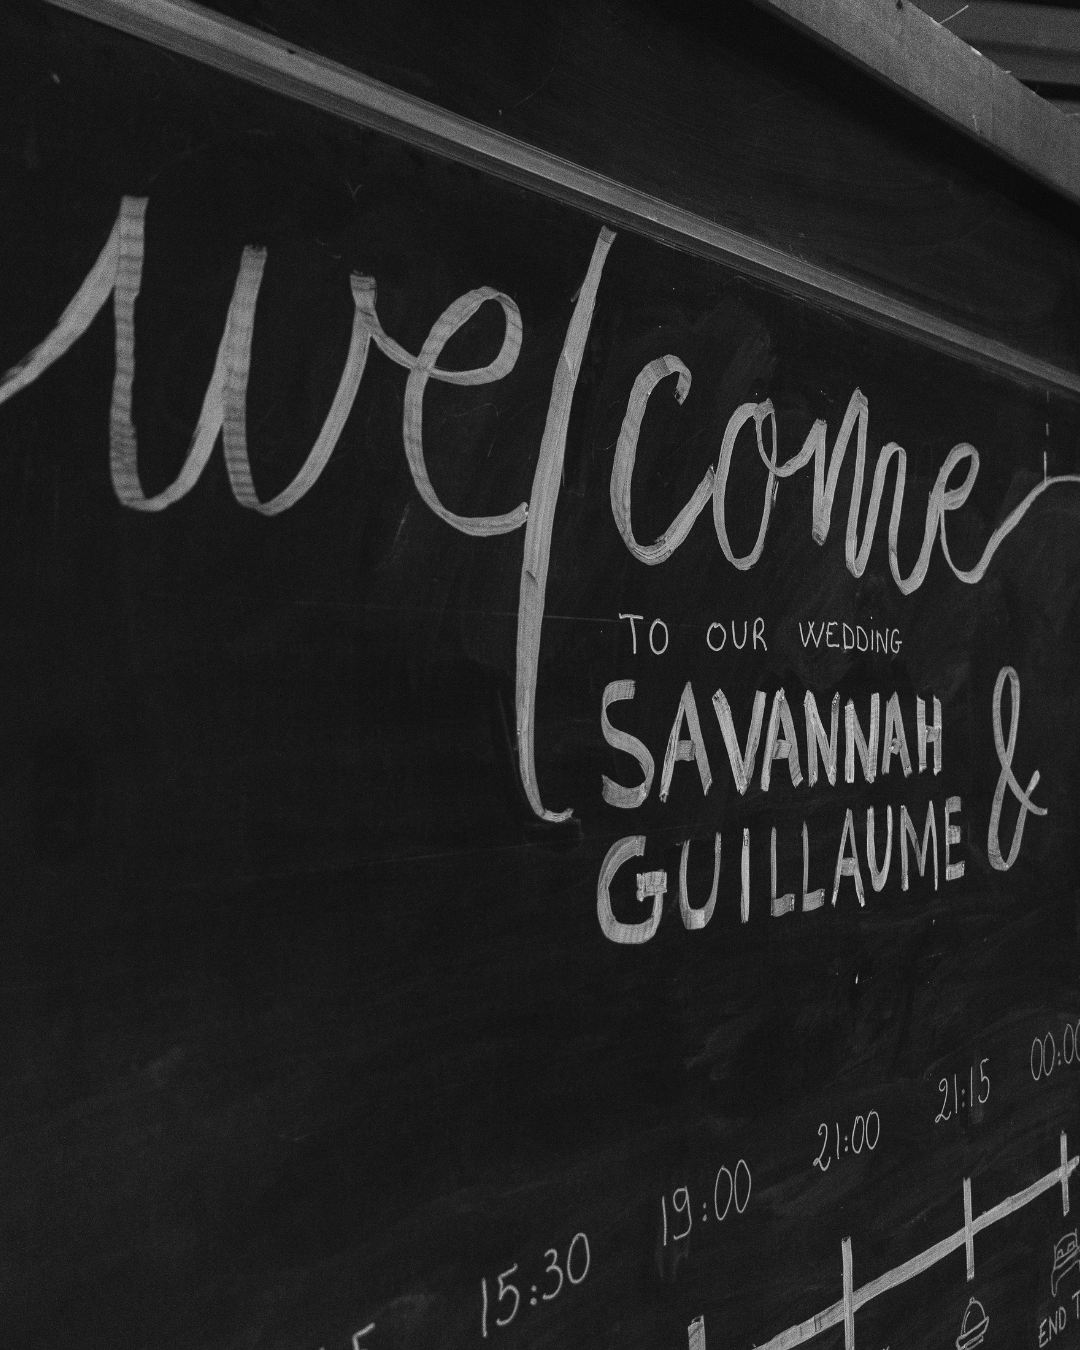 welcome
TO OUR WEDDING
SAVANNAH &
GUILLAUME
15:30 19:00 21:00 21:15 00:00
END